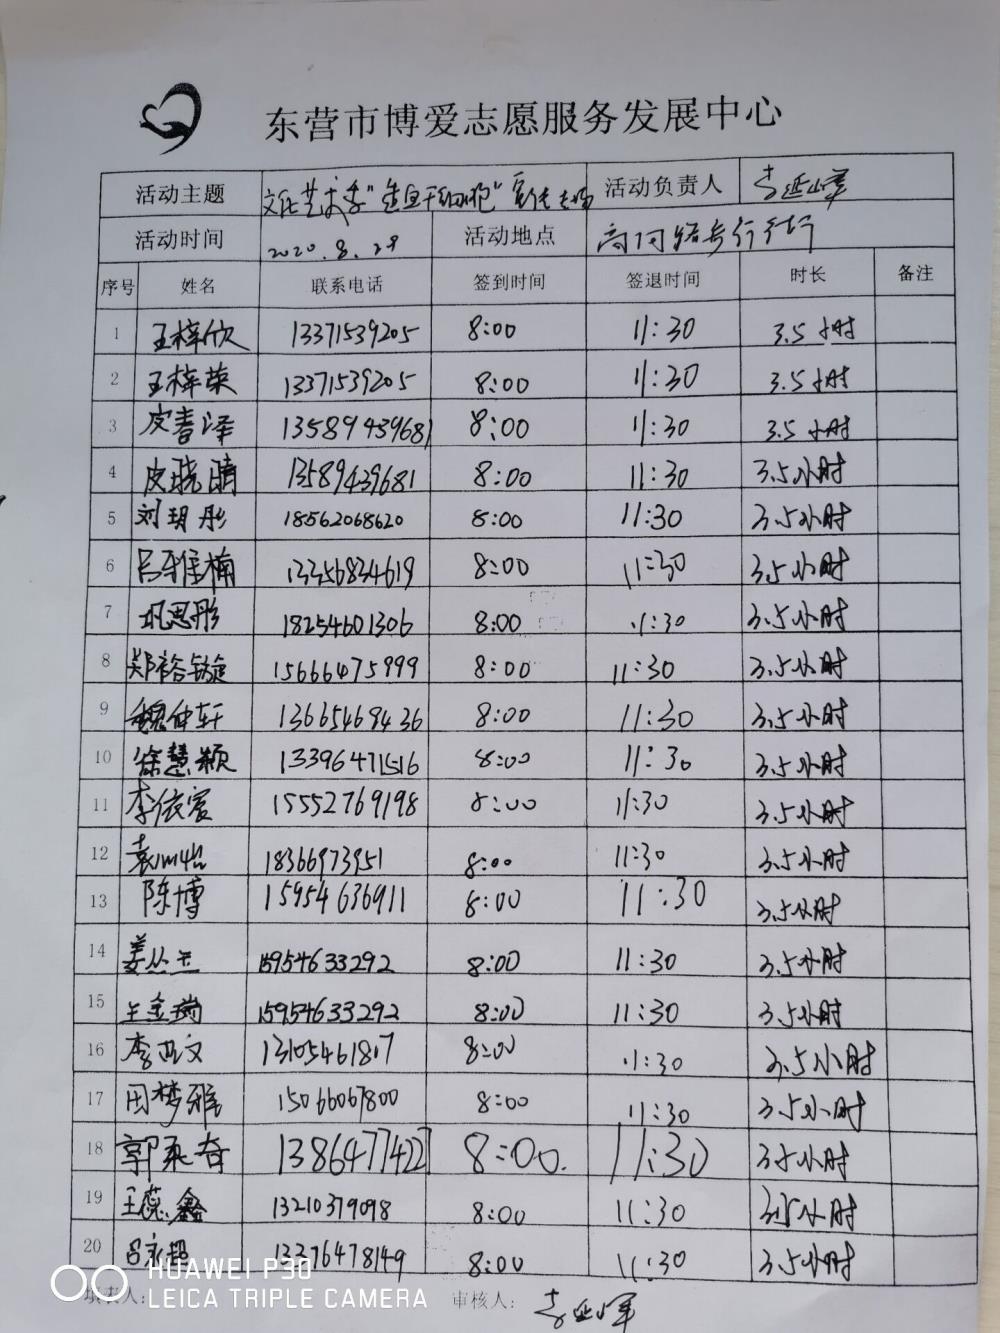 东营市博爱志愿服务发展中心
活动主题 文化艺术季"造血干细胞"宣传专场 活动负责人 李延军
活动时间 2020.8.29 活动地点 商河路步行街
序号 姓名 联系电话 签到时间 签退时间 时长 备注
1 王梓欣 13371539205 8:00 11:30 3.5小时
2 王梓荣 13371539205 8:00 11:30 3.5小时
3 皮善泽 13589439681 8:00 11:30 3.5小时
4 皮晓晴 13589439681 8:00 11:30 3.5小时
5 刘玥彤 18562068620 8:00 11:30 3.5小时
6 吕雅楠 13356834619 8:00 11:30 3.5小时
7 巩思彤 18254601306 8:00 11:30 3.5小时
8 郑裕镟 15666475999 8:00 11:30 3.5小时
9 魏仲轩 13665469436 8:00 11:30 3.5小时
10 徐慧颖 13396471516 8:00 11:30 3.5小时
11 李依宸 15552769198 8:00 11:30 3.5小时
12 袁 18366973951 8:00 11:30 3.5小时
13 陈博 15954636911 8:00 11:30 3.5小时
14 姜丛兰 15954633292 8:00 11:30 3.5小时
15 王金瑞 15954633292 8:00 11:30 3.5小时
16 李亚文 13105461807 8:00 11:30 3.5小时
17 田梦雅 15066067800 8:00 11:30 3.5小时
18 郭秉奇 13864774227 8:00. 11:30 3.5小时
19 王蕊鑫 13210379098 8:00 11:30 3.5小时
20 吕永超 13376478149 8:00 11:30 3.5小时
填表人: 审核人: 李延军
HUAWEI P30
LEICA TRIPLE CAMERA